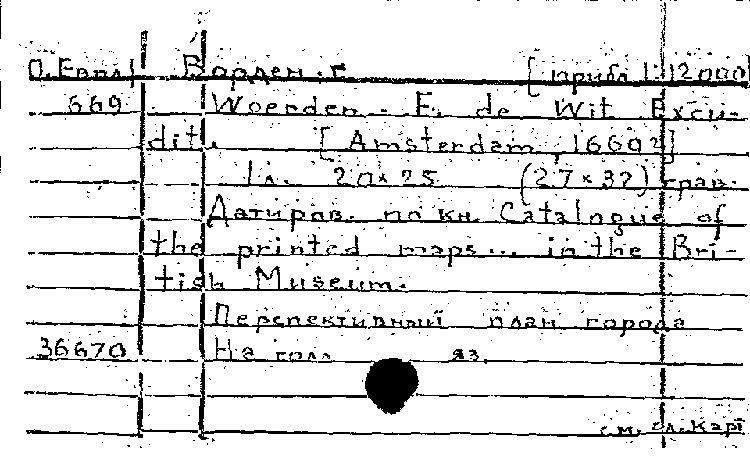 О. Евпл Ворден. г [прибл 1:12000]
669 Woerden. F. de Wit Excu-
dit. [Amsterdam, 1660?]
1 л. 20×25 (27×32) грав.
Датиров. по кн. Catalogue of
the printed maps... in the Bri-
tish Museum.
Перспективный план города
36670 На голл яз.
см. сл. карт